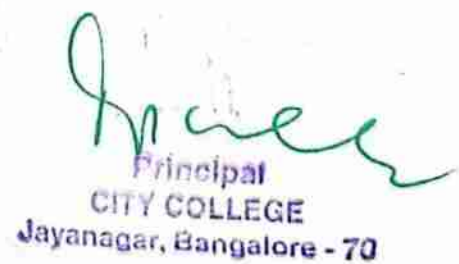 Principal
CITY COLLEGE
Jayanagar, Bangalore - 70